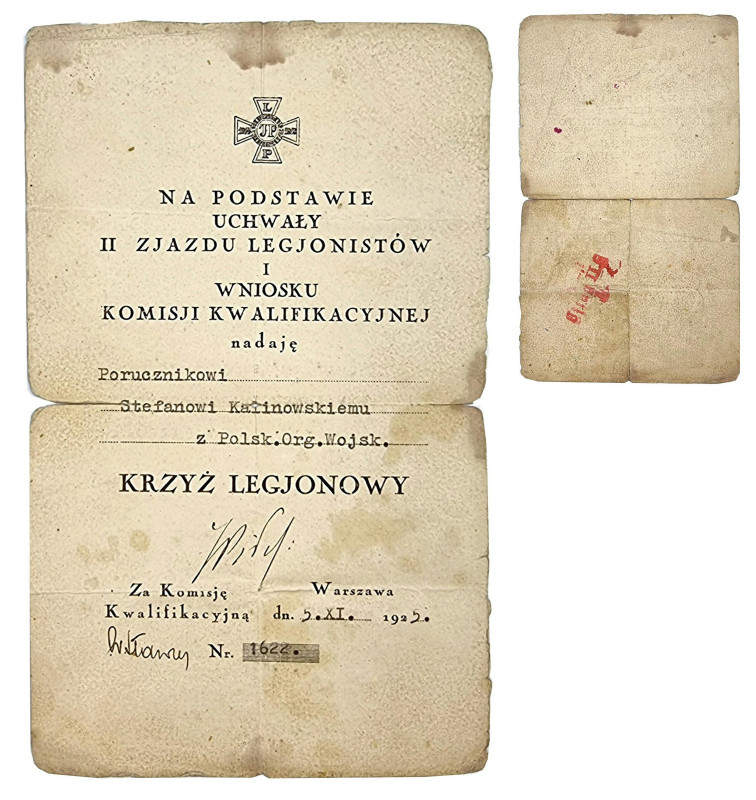 L
JP
P
NA PODSTAWIE
UCHWAŁY
II ZJAZDU LEGJONISTÓW
I
WNIOSKU
KOMISJI KWALIFIKACYJNEJ
nadaję
Porucznikowi
Stefanowi Kalinowskiemu
z Polsk.Org.Wojsk.
KRZYŻ LEGJONOWY
Za Komisję
Kwalifikacyjną
Warszawa
dn. 5.XI. 1925.
Nr. 1622.